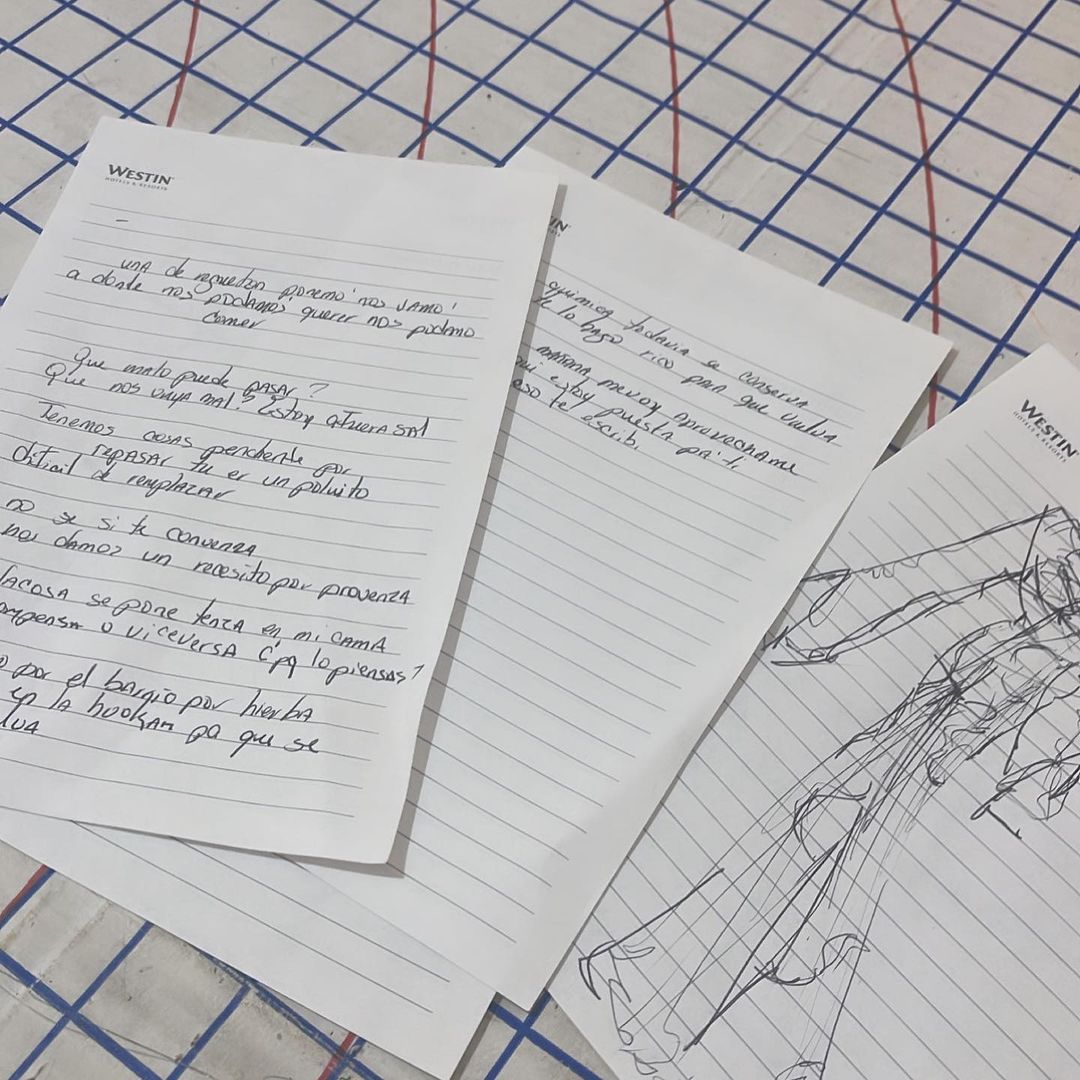 WESTIN
HOTELS & RESORTS
una de regueton ponemo' nos vamo'
a donde nos podamos querer nos podemo
comer
Que malo puede pasar?
Que nos vaya mal? Estoy afuera sal
Tenemos cosas pendiente por
repasar tu er un polvito
dificil de remplazar
no se si te convenza
nos damos un recesito por provenza
la cosa se pone tenza en mi cama
o viceversa ¿pq lo piensas?
por el barrio por hierba
en la hookah pa que se
quimica todavia se conserva
te lo hago rico para que vuelva
mañana me voy aprovechame
estoy puesta pa' ti
eso te escrib.
WESTIN
HOTELS & RESORTS